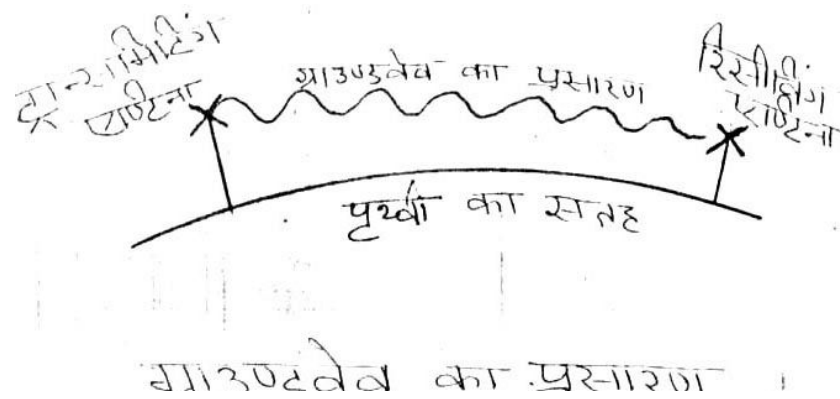 ट्रान्समिटिंग
एण्टिना
ग्राउण्डवेव का प्रसारण
रिसीविंग
एण्टिना
पृथ्वी का सतह
ग्राउण्टवेव का प्रसारण ।